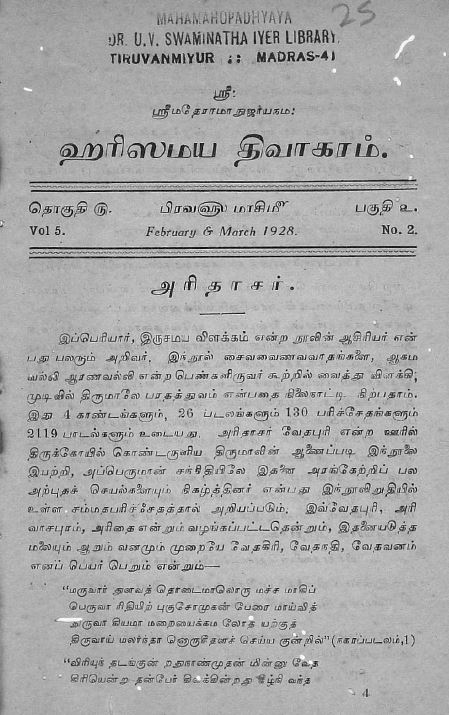 MAHAMAHOPADHYAYA
DR. U.V. SWAMINATHA IYER LIBRARY,
TIRUVANMIYUR :: MADRAS-41
25
ஸ்ரீ:
ஸ்ரீமதேராமாநுஜாயநம:
ஹரிஸமய திவாகரம்.
தொகுதி ௫. பிரபவ௵ மாசி௴ பகுதி ௨.
Vol 5. February & March 1928. No. 2.
அரிதாசர்.
இப்பெரியார், இருசமய விளக்கம் என்ற நூலின் ஆசிரியர் என்
பது பலரும் அறிவர். இந்நூல் சைவவைணவவாதங்களை, ஆகம
வல்லி ஆரணவல்லி என்ற பெண்களிருவர் கூற்றில் வைத்து விளக்கி,
முடிவில் திருமாலே பரதத்துவம் என்பதை நிலைநாட்டி நிற்பதாம்.
இது 4 காண்டங்களும், 26 படலங்களும் 130 பரிச்சேதங்களும்
2119 பாடல்களும் உடையது. அரிதாசர் வேதபுரி என்ற ஊரில்
திருக்கோயில் கொண்டருளிய திருமாலின் ஆணைப்படி இந்நூலை
இயற்றி, அப்பெருமான் சந்நிதியிலே இதனை அரங்கேற்றிப் பல
அற்புதச் செயல்களையும் நிகழ்த்தினர் என்பது இந்நூலிறுதியில்
உள்ள சம்மதபரிச்சேதத்தால் அறியப்படும். இவ்வேதபுரி, அரி
வாசபுரம், அரிதை என்றும் வழங்கப்பட்டதென்றும், இதனையடுத்த
மலையும் ஆறும் வனமும் முறையே வேதகிரி, வேதநதி, வேதவனம்
எனப் பெயர் பெறும் என்றும்—
“மருவார் துளவத் தொடைமாலொரு மச்ச மாகிப்
பெருவா ரிதியிற் புகுசோமுகன் பேரை மாய்வித்
திருவாய் மலர்ந்தா செய்ய குன்றில்” (நகரப்படலம், 1)
“விரியுந் தடங்குன் றதுநான்முதன் மின்னு வேத
கிரியென்று தன்பேர்
4